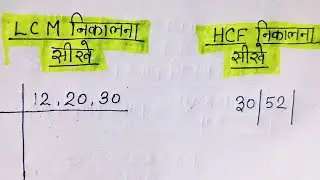 LCM निकालना
सीखे
HCF निकालना
सीखे
12, 20, 30
30|52|